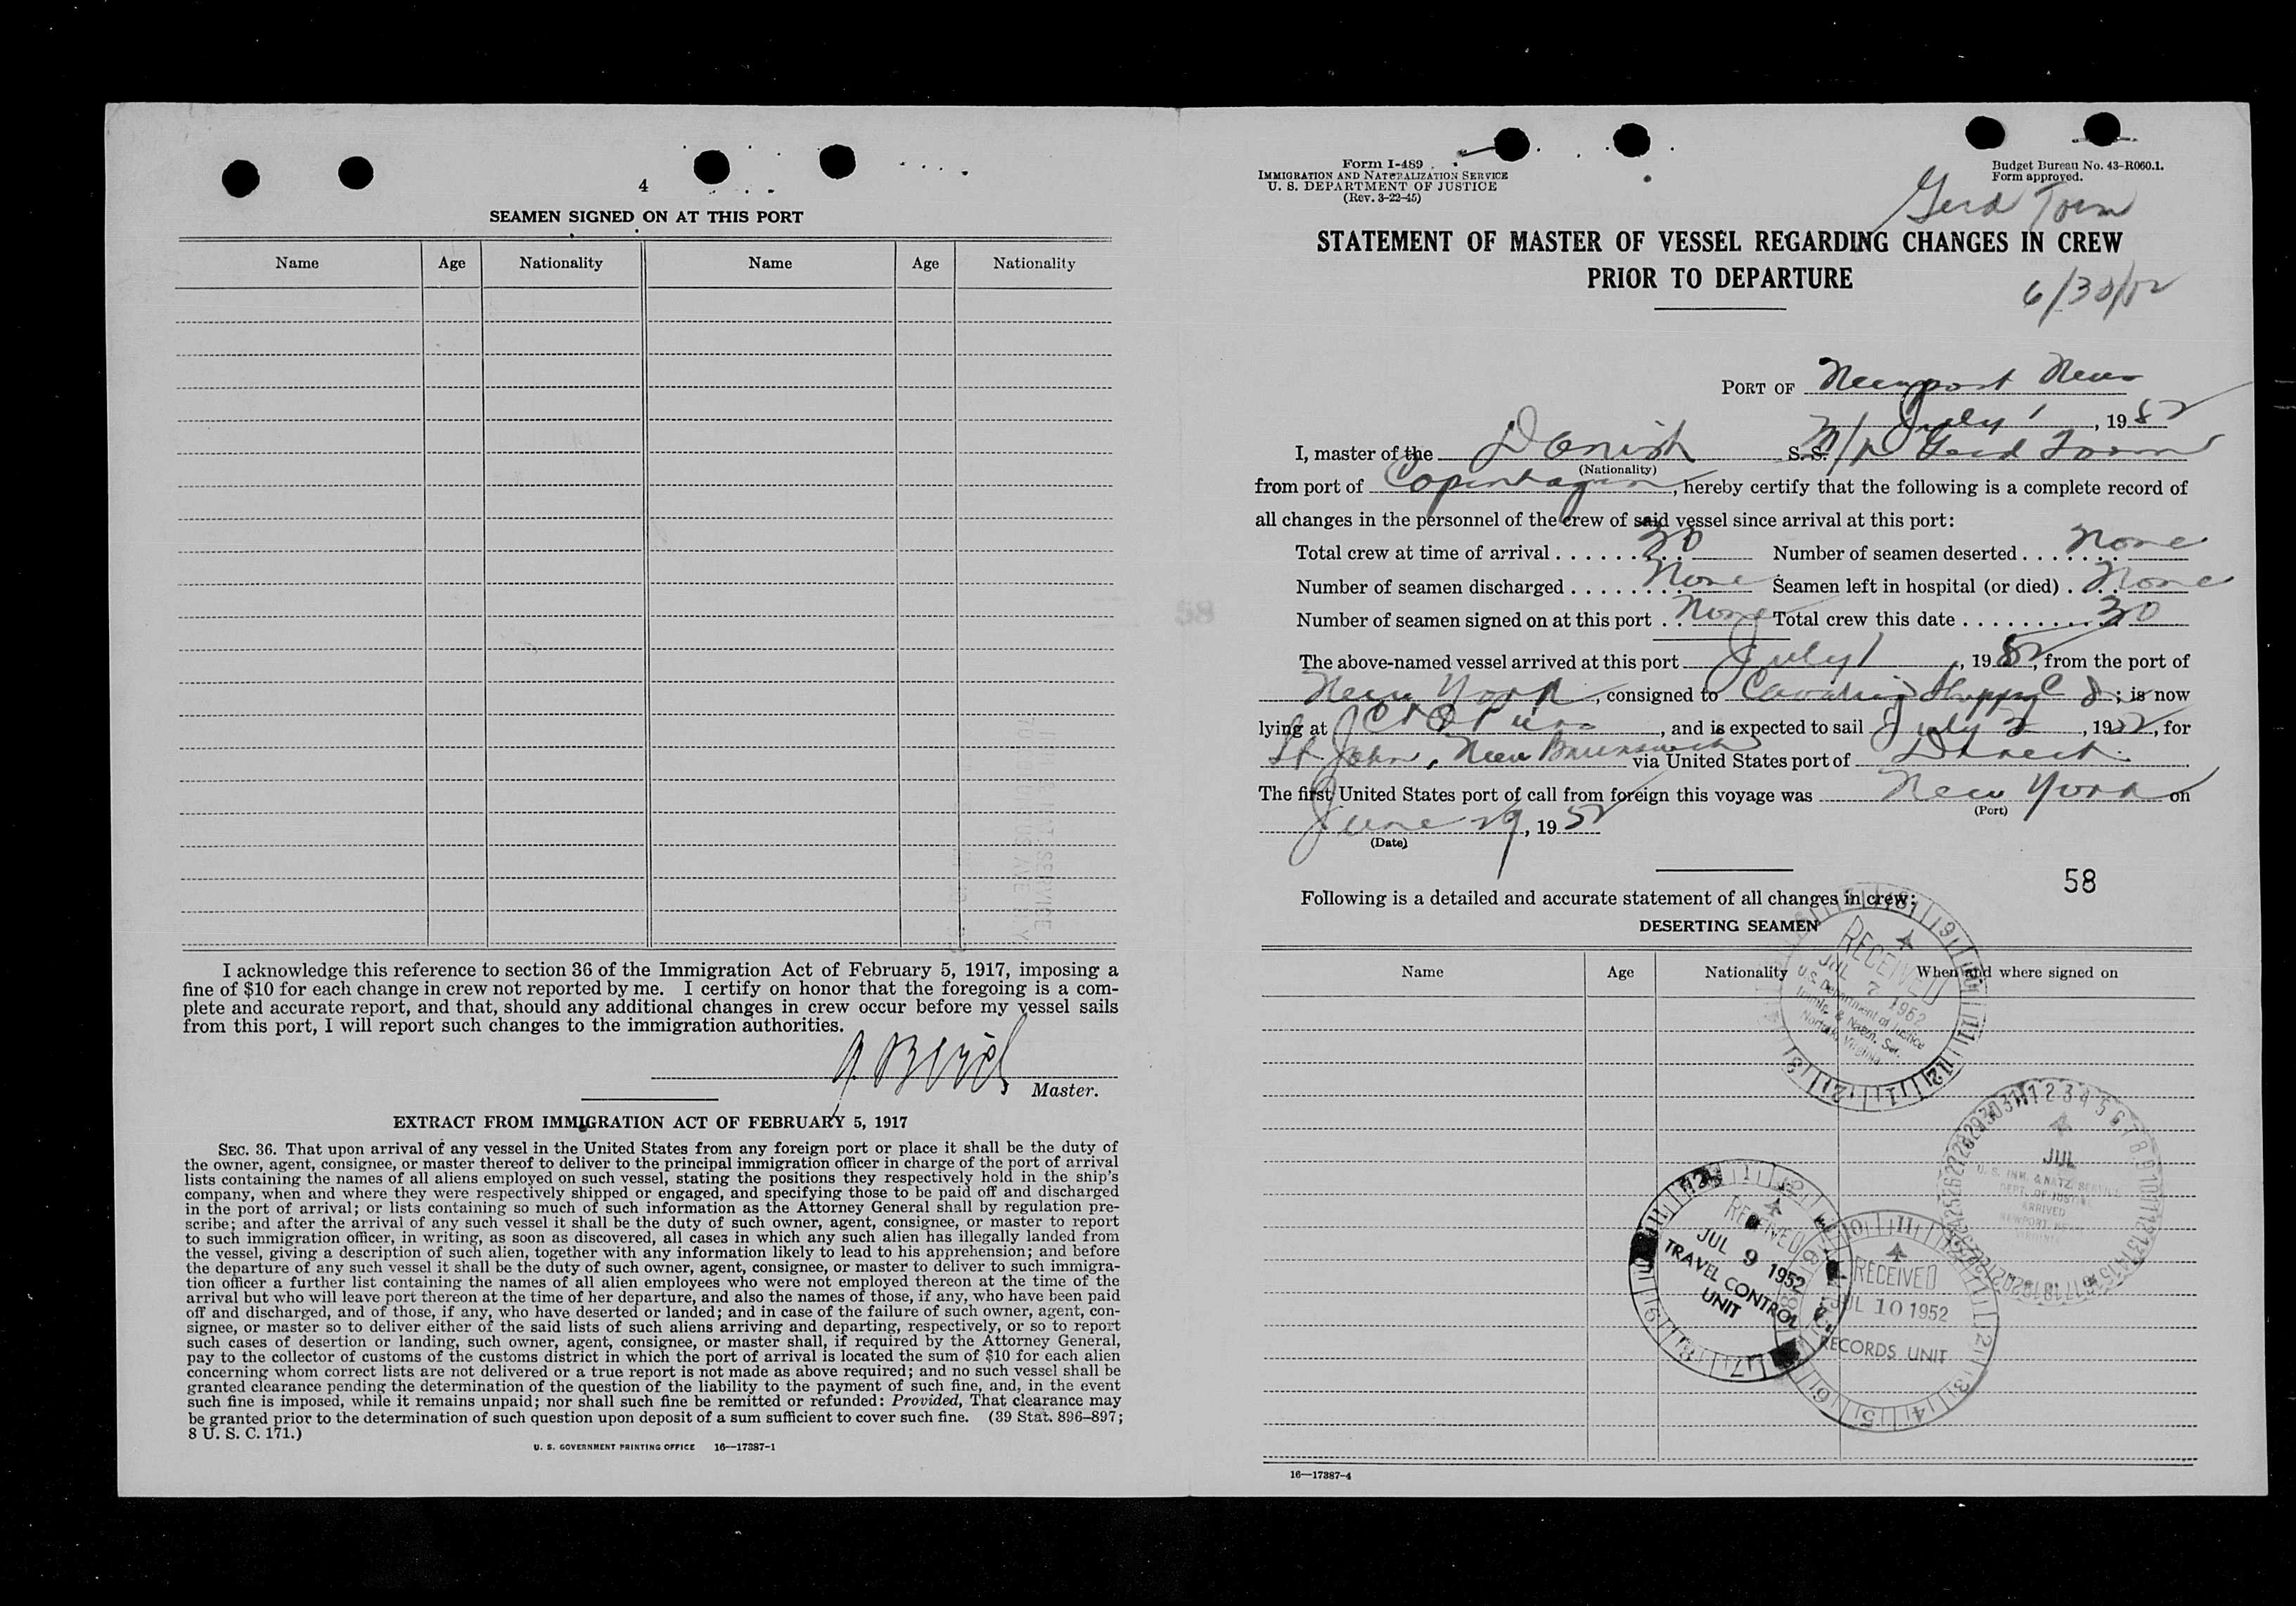 4
SEAMEN SIGNED ON AT THIS PORT
Name Age Nationality Name Age Nationality
I acknowledge this reference to section 36 of the Immigration Act of February 5, 1917, imposing a
fine of $10 for each change in crew not reported by me. I certify on honor that the foregoing is a com-
plete and accurate report, and that, should any additional changes in crew occur before my vessel sails
from this port, I will report such changes to the immigration authorities.
Master.
EXTRACT FROM IMMIGRATION ACT OF FEBRUARY 5, 1917
SEC. 36. That upon arrival of any vessel in the United States from any foreign port or place it shall be the duty of
the owner, agent, consignee, or master thereof to deliver to the principal immigration officer in charge of the port of arrival
lists containing the names of all aliens employed on such vessel, stating the positions they respectively hold in the ship's
company, when and where they were respectively shipped or engaged, and specifying those to be paid off and discharged
in the port of arrival; or lists containing so much of such information as the Attorney General shall by regulation pre-
scribe; and after the arrival of any such vessel it shall be the duty of such owner, agent, consignee, or master to report
to such immigration officer, in writing, as soon as discovered, all cases in which any such alien has illegally landed from
the vessel, giving a description of such alien, together with any information likely to lead to his apprehension; and before
the departure of any such vessel it shall be the duty of such owner, agent, consignee, or master to deliver to such immigra-
tion officer a further list containing the names of all alien employees who were not employed thereon at the time of the
arrival but who will leave port thereon at the time of her departure, and also the names of those, if any, who have been paid
off and discharged, and of those, if any, who have deserted or landed; and in case of the failure of such owner, agent, con-
signee, or master so to deliver either of the said lists of such aliens arriving and departing, respectively, or so to report
such cases of desertion or landing, such owner, agent, consignee, or master shall, if required by the Attorney General,
pay to the collector of customs of the customs district in which the port of arrival is located the sum of $10 for each alien
concerning whom correct lists are not delivered or a true report is not made as above required; and no such vessel shall be
granted clearance pending the determination of the question of the liability to the payment of such fine, and, in the event
such fine is imposed, while it remains unpaid; nor shall such fine be remitted or refunded: Provided, That clearance may
be granted prior to the determination of such question upon deposit of a sum sufficient to cover such fine. (39 Stat. 896–897;
8 U. S. C. 171.)
U. S. GOVERNMENT PRINTING OFFICE 16—17387-1
Form I-489
IMMIGRATION AND NATURALIZATION SERVICE
U. S. DEPARTMENT OF JUSTICE
(Rev. 3-22-45)
Budget Bureau No. 43-R060.1.
Form approved.
Gerd Torm
STATEMENT OF MASTER OF VESSEL REGARDING CHANGES IN CREW
PRIOR TO DEPARTURE
6/30/52
PORT OF Newport News
July 1, 1952
I, master of the Danish S. S. Gerd Torm
(Nationality)
from port of Copenhagen, hereby certify that the following is a complete record of
all changes in the personnel of the crew of said vessel since arrival at this port:
Total crew at time of arrival 30 Number of seamen deserted None
Number of seamen discharged None Seamen left in hospital (or died) None
Number of seamen signed on at this port None Total crew this date 30
The above-named vessel arrived at this port July 1, 1952, from the port of
New York, consigned to ; is now
lying at C & O Piers, and is expected to sail July 2, 1952, for
St John, New Brunswick via United States port of Direct
The first United States port of call from foreign this voyage was New York on
(Port)
June 29, 1952
(Date)
58
Following is a detailed and accurate statement of all changes in crew:
DESERTING SEAMEN
Name Age Nationality When and where signed on
RECEIVED
JUL 7 1952
U.S. Department of Justice
Immig. & Naturn. Ser.
Norfolk, Virginia
JUL
U. S. IMM. & NATZ. SERVICE
DEPT. OF JUSTICE
ARRIVED
NEWPORT NEWS
VIRGINIA
RECEIVED
JUL 9 1952
TRAVEL CONTROL
UNIT
RECEIVED
JUL 10 1952
RECORDS UNIT
16—17387-4